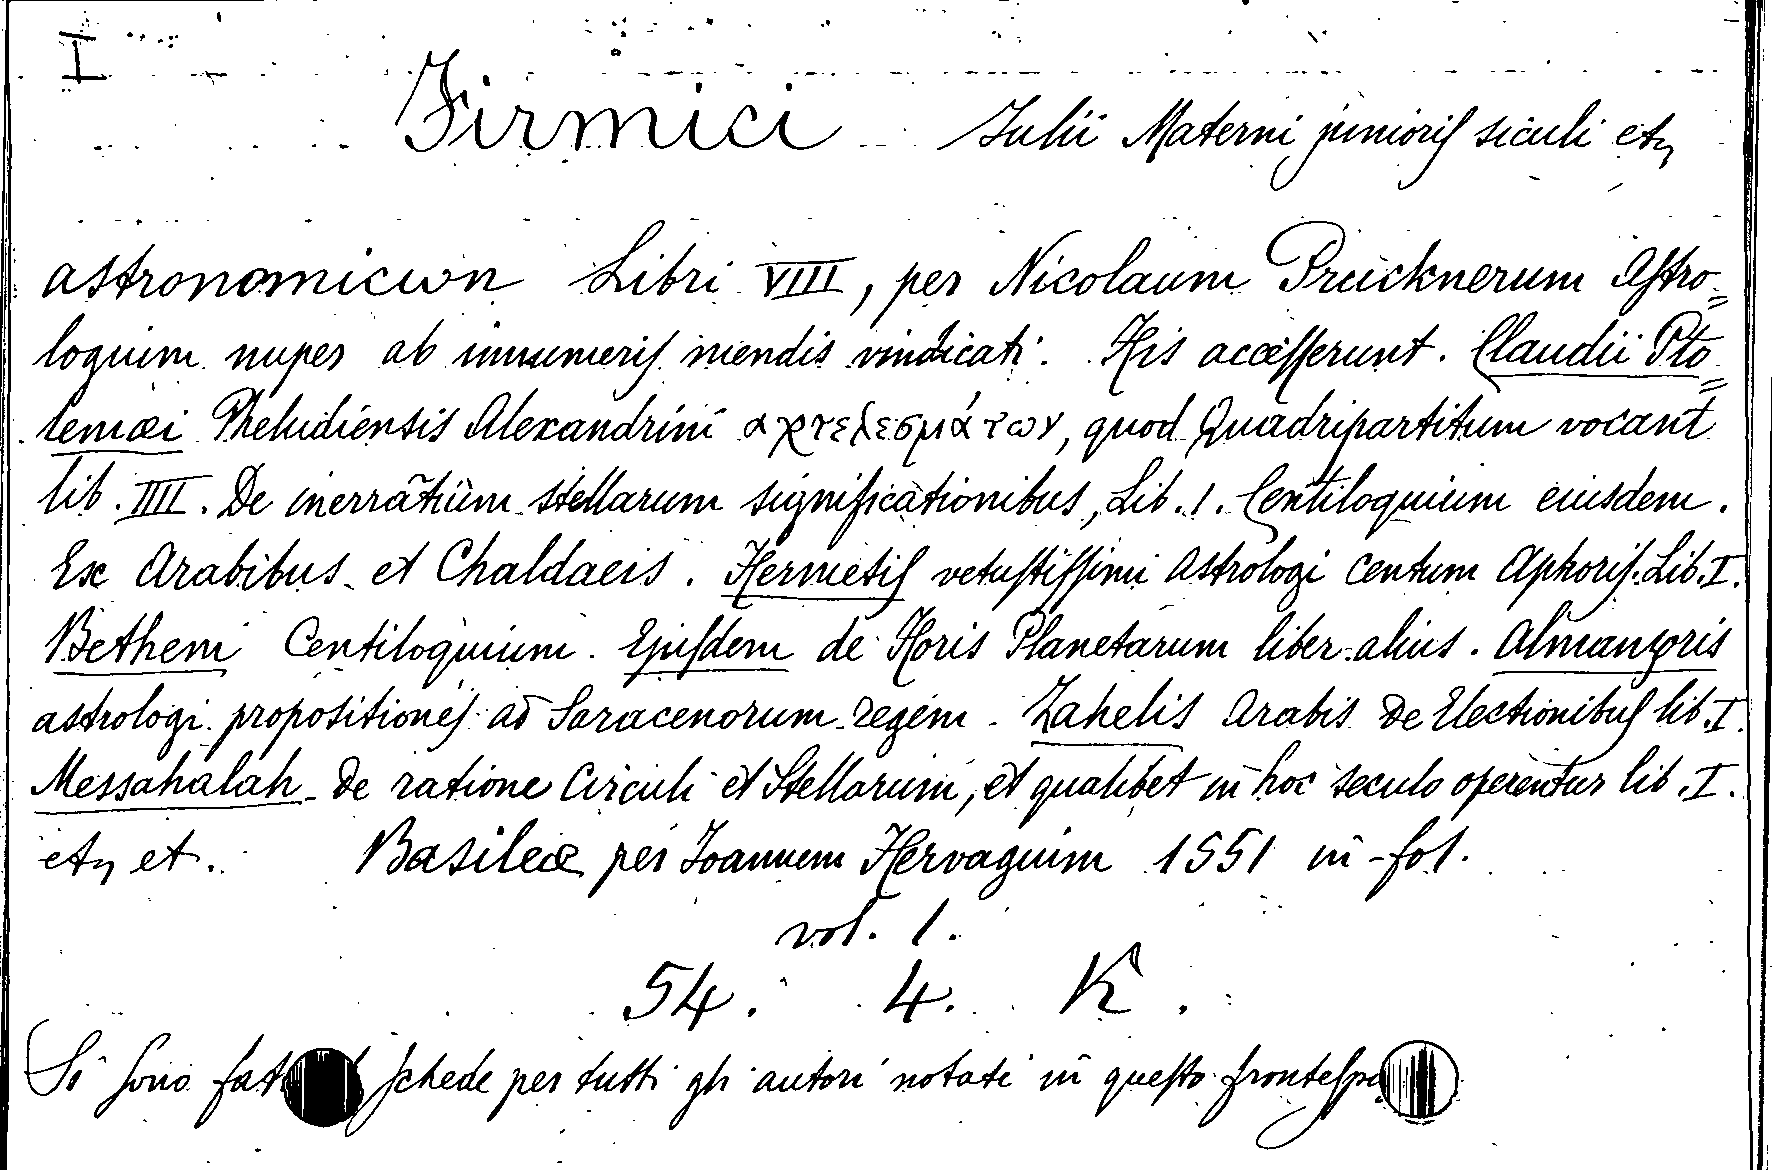 I
Firmici Julii Materni junioris siculi etc
astronomicωn Libri VIII, per Nicolaum Prucknerum Astro=
loguum nuper ab innumeris mendis vindicati. His accesserunt. Claudii Pto=
lemæi Pheludiensis Alexandrini αχτελεσμάτων, quod Quadripartitum vocant
lib. IIII. De inerrãtium stellarum significationibus, Lib. 1. Centiloquium eiusdem.
Ex Arabibus et Chaldaeis. Hermetis vetustissimi Astrologi centum Aphoris. Lib. I.
Bethem Centiloquium. Ejusdem de Horis Planetarum liber alius. Almanzoris
astrologi propositiones ad Saracenorum regem. Zahelis Arabis De Electionibus lib. I.
Messahalah De ratione Circuli et Stellarum, et qualibet in hoc seculo operentur lib. I.
etc et. Basileæ per Joannem Hervaguim 1551 in-fol.
vol. 1.
54. 4. K.
Si sono schede per tutti gli autori notati in questo